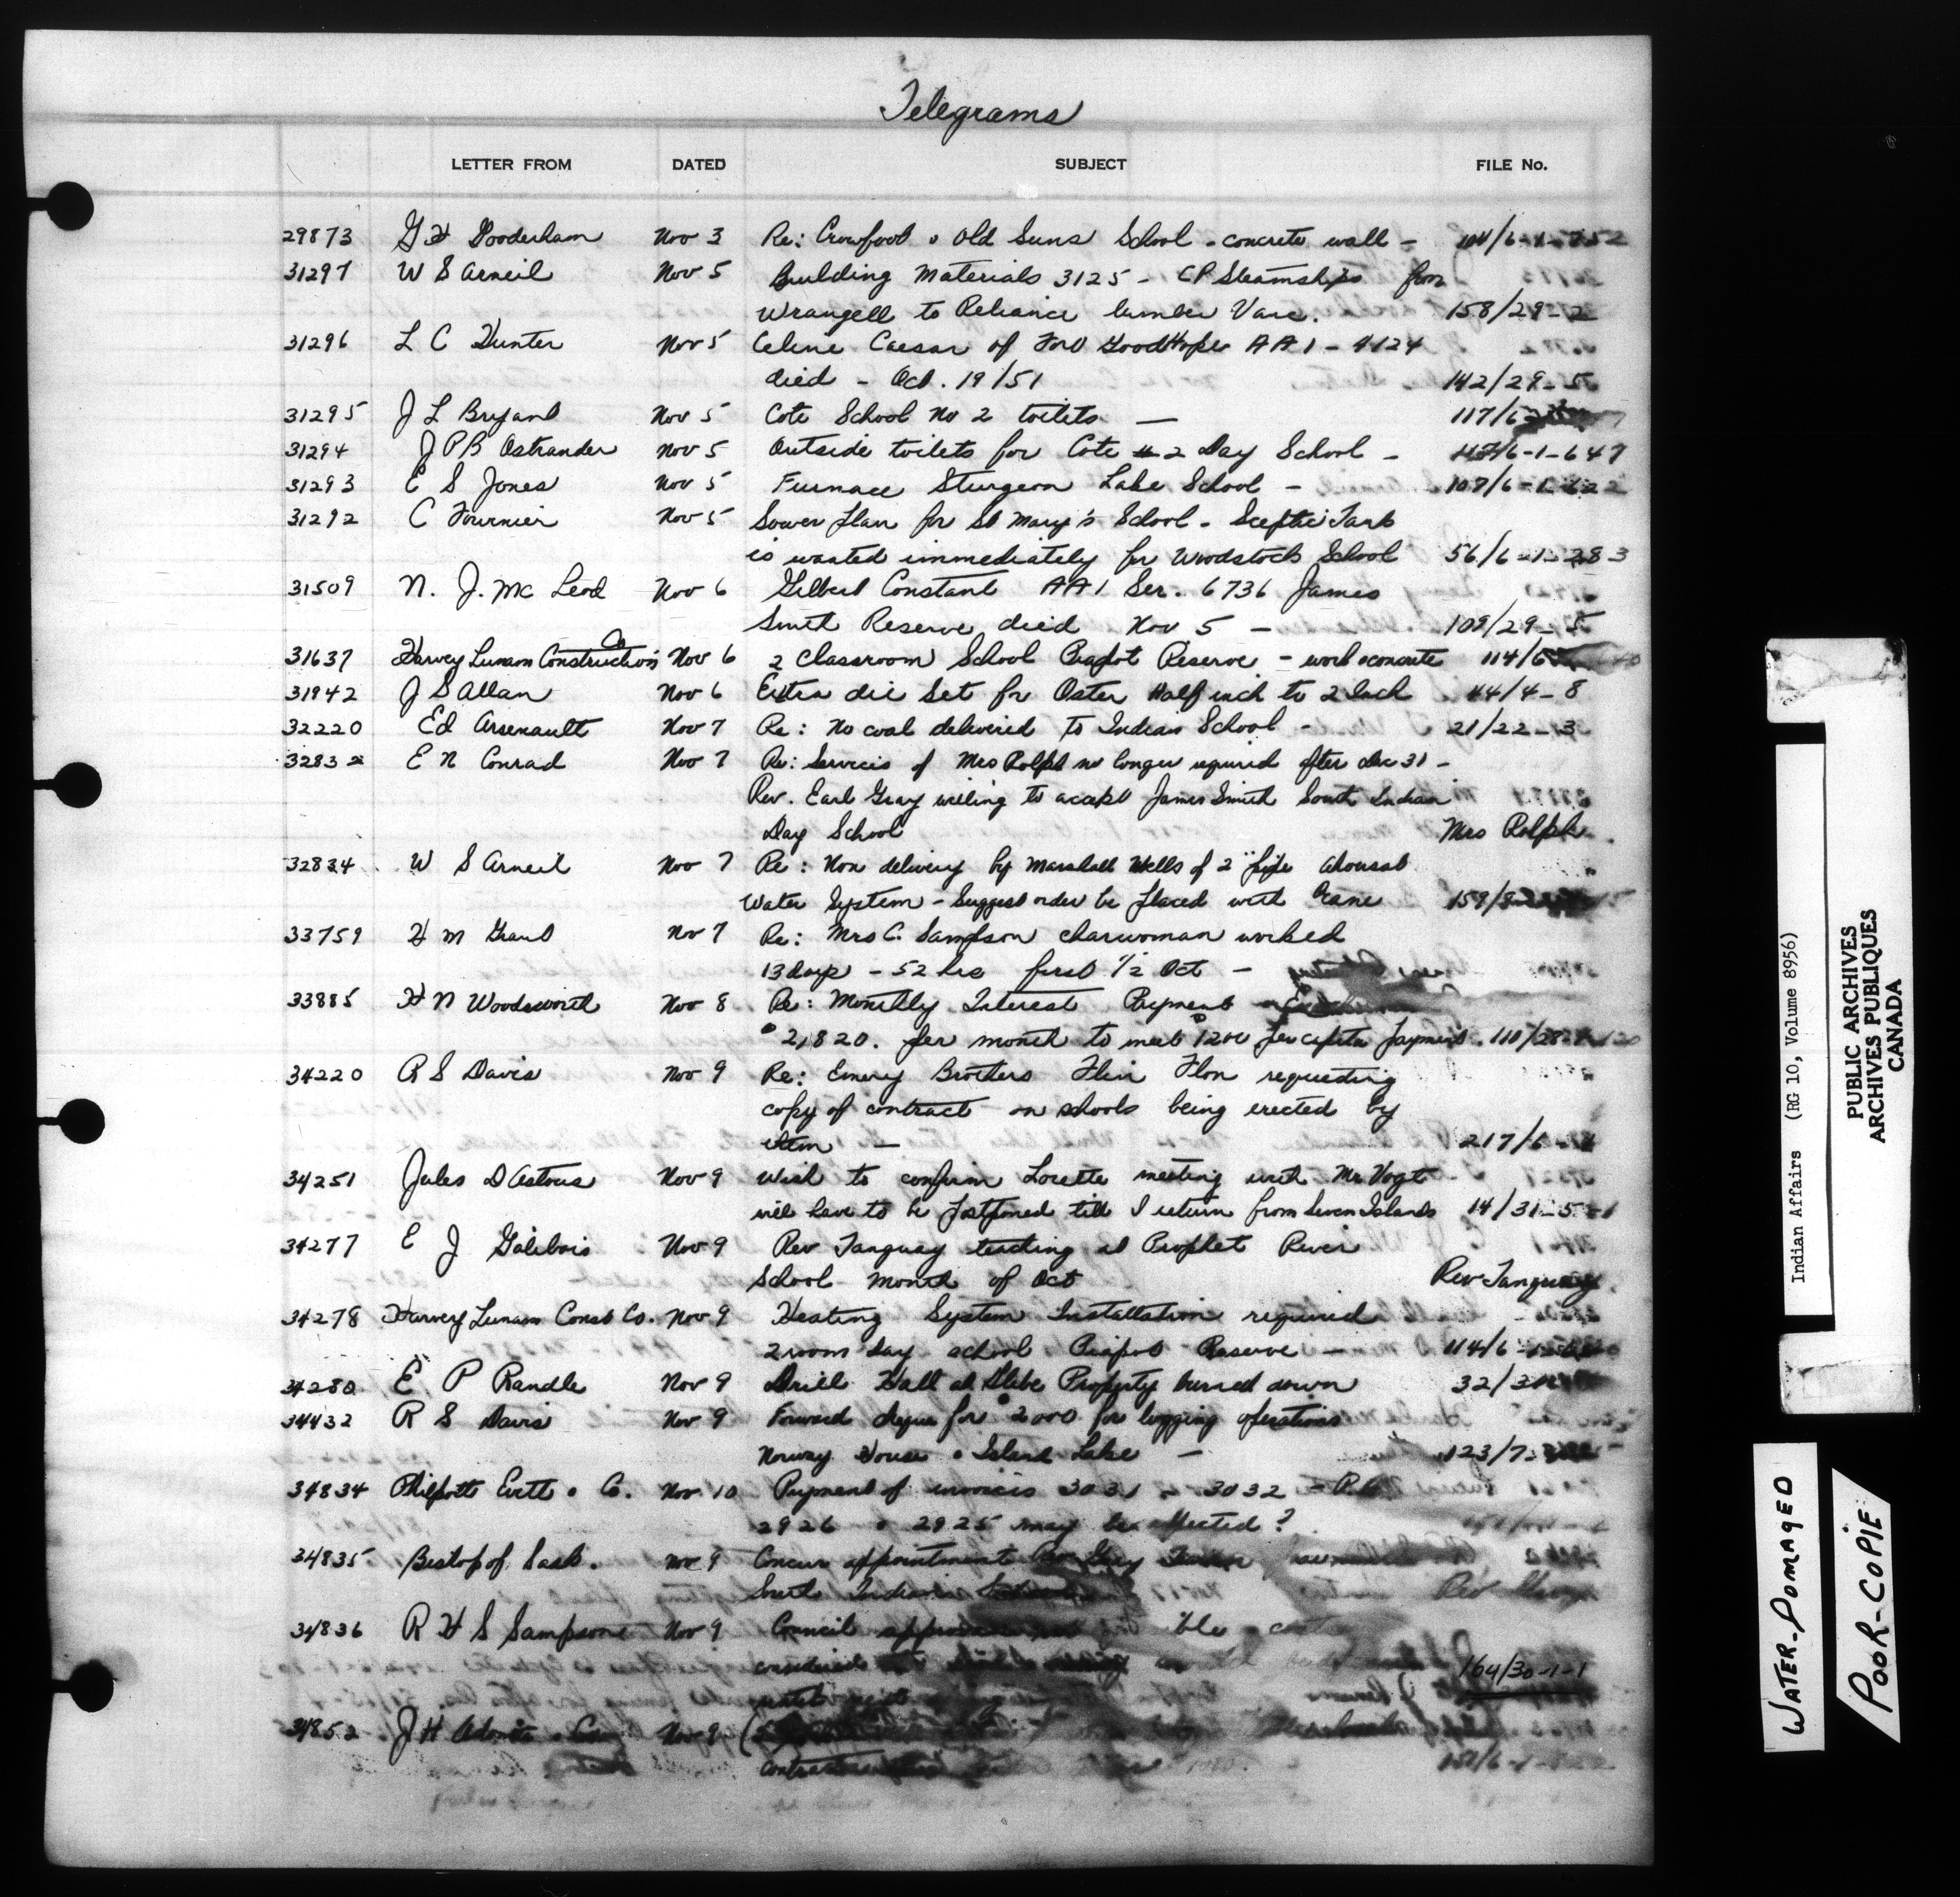 Telegrams
LETTER FROM DATED SUBJECT FILE No.
29873 G H Gooderham Nov 3 Re: Crowfoot & Old Suns School - concrete wall -
31297 W S Arneil Nov 5 Building Materials 3125 - CP Steamships from
Wrangell to Reliance lumber Vanc. 158/29-2
31296 L C Hunter Nov 5 Celine Caesar of Fort Good Hope AA1 - 4124
died - Oct. 19/51 142/29-5
31295 J L Bryant Nov 5 Cote School No 2 toilets — 117/6
31294 J P B Ostrander Nov 5 Outside toilets for Cote # 2 Day School - 117/6-1-647
31293 E S Jones Nov 5 Furnace Sturgeon Lake School - 107/6-1-622
31292 C Fournier Nov 5 Sower plan for St Mary's School - Sceptic Tank
is wanted immediately for Woodstock School 56/6-1-283
31509 N. J. Mc Leod Nov 6 Gilbert Constant AA1 Ser. 6736 James
Smith Reserve died Nov 5 - 109/29-5
31637 Harvey Lunam Construction Co Nov 6 2 Classroom School Piapot Reserve - work & concrete 114/6
31942 J S Allan Nov 6 Extra die set for Oster Half inch to 2 Inch 44/4-8
32220 Ed Arsenault Nov 7 Re: No coal delivered to Indian School - 21/22-3
32832 E N Conrad Nov 7 Re: Services of Mrs Rolph no longer required after Dec 31 -
Rev. Earl Gray willing to accept James Smith South Indian
Day School Mrs Rolph.
32834 W S Arneil Nov 7 Re: Non delivery by Marshall Wells of 2" pipe Ahousat
Water System - Suggest order be placed with Crane 159/8
33759 H M Grant Nov 7 Re: Mrs C. Sampson charwoman worked
13 days - 52 hrs first 1/2 Oct -
33885 H N Woodsworth Nov 8 Re: Monthly Interest Payment
$2,820. per month to meet $1200 per capita payment. 110/28
34220 R S Davis Nov 9 Re: Emery Brothers Flin Flon requesting
copy of contract on schools being erected by
them — 217/6
34251 Jules D'Astous Nov 9 Wish to confirm Lorette meeting with Mr Vogt
will have to be postponed till I return from Seven Islands 14/31-5-1
34277 E J Galibois Nov 9 Rev Tanguay teaching at Prophet River
School month of Oct Rev Tanguay.
34278 Harvey Lunam Const Co. Nov 9 Heating System Installation required
2 room day school Piapot Reserve — 114/6
34280 E P Randle Nov 9 Drill Hall at Glebe Property burned down 32/
34432 R S Davis Nov 9 Forward cheque for $2000 for logging operations
Norway House & Island Lake - 123/7
34834 Philpott Evitt & Co. Nov. 10 Payment of invoices 3031 3032
2926 & 2925 may be effected?
34835 Bishop of Sask. Nov 9 Concur appointment Gray
Smith Indian
34836 R H S Sampson Nov 9 Council
considered 164/30-1-1
34852 J H Nov 9
Indian Affairs (RG 10, Volume 8956)
PUBLIC ARCHIVES
ARCHIVES PUBLIQUES
CANADA
WATER-DOMAGED
POOR-COPIE